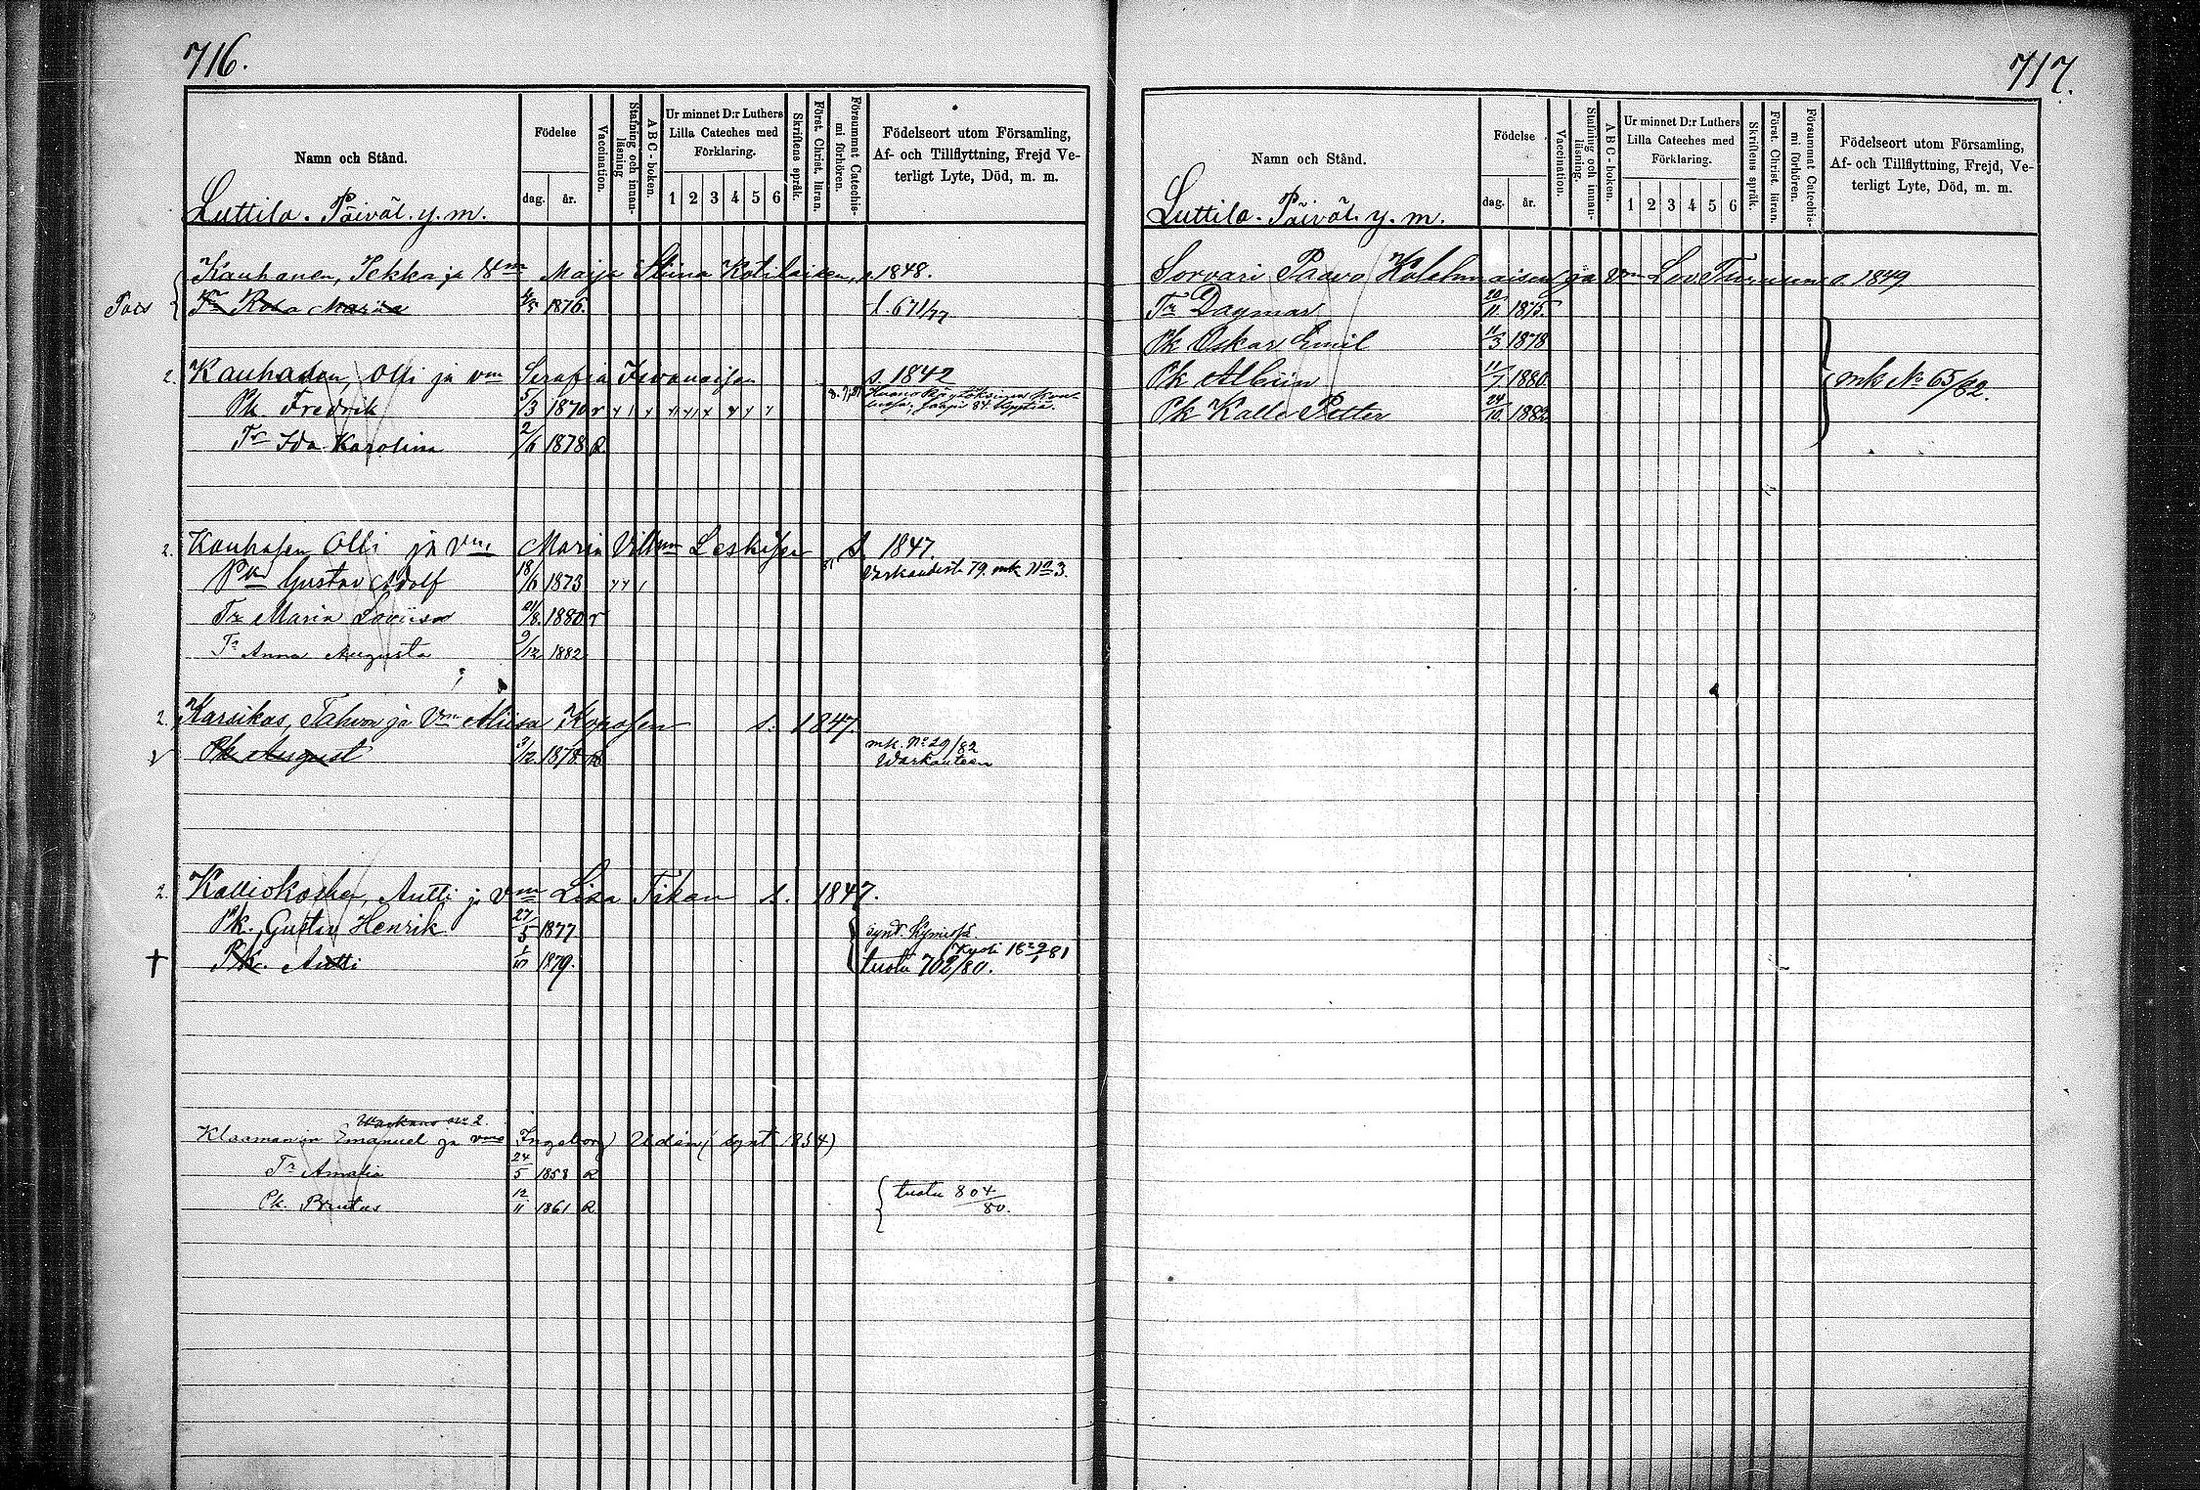 716.
Namn och Stånd.
Födelse
dag.
år.
Vaccination.
Stafning och innan-läsning
ABC-boken.
Ur minnet D:r Luthers
Lilla Cateches med
Förklaring.
1 2 3 4 5 6
Skriftens språk.
Först. Christ. läran.
Försummat Catechis-mi förhören.
Födelseort utom Församling,
Af- och Tillflyttning, Frejd Ve-
terligt Lyte, Död, m. m.
Luttila. Päiväl. y. m.
Kauhanen, Pekka ja Vm Maija Stiina Kotilainen, s. 1848.
Tr Rosa Maria 1876. 671/77
2. Kauhanen, Olli ja vm Serafia Iivanaisen s. 1842
Pk Fredrik 5/3 1870 r
Tr Ida Karolina 2/6 1878 R.
2. Kauhasen Olli ja Vm Maria Vilhm Leskisen s. 1847.
Pk Gustav Adolf 18/6 1873 Varkaudesta 79. mk No 3.
Tr Maria Loviisa 1880 r
Tr Anna Augusta 9/12 1882
2. Karsikas, Tahvo ja Vm Miisa Koposen s. 1847.
Pk August 3/12. 1878 R mk. No 29/82
Warkauteen
2. Kalliokoski, Antti ja vm Liisa Tikan s. 1847.
Pk. Gustav Henrik 27/5 1877 synt. Kymissä.
† Pk. Antti 1879. Kuoli 18 2/1 81
tuotu 702/80.
Warkaus no 2.
Klaaman in Emanuel ja vmo Ingeborg Udén (synt. 1834)
Tr Amalia 24/5 1858 R
Pk. Brutus 12/11 1861 R tuotu 804/80.
717.
Namn och Stånd.
Födelse
dag.
år.
Vaccination
Stafning och innan-läsning.
ABC-boken.
Ur minnet D:r Luthers
Lilla Cateches med
Förklaring.
1 2 3 4 5 6
Skriftens språk.
Först. Christ. läran.
Försummat Catechis-mi förhören.
Födelseort utom Församling,
Af- och Tillflyttning, Frejd, Ve-
terligt Lyte, Död, m. m.
Luttila. Päiväl. y. m.
Sorvari Paavo Kolehmaisen ja Vm Lov. Turunen s. 1849
Tr Dagmar 20/11. 1875.
Pk Oskar Emil 11/3 1878
Pk Albiin 11/7 1880. mk No 65/82.
Pk Kalle Petter 24/10. 1882.